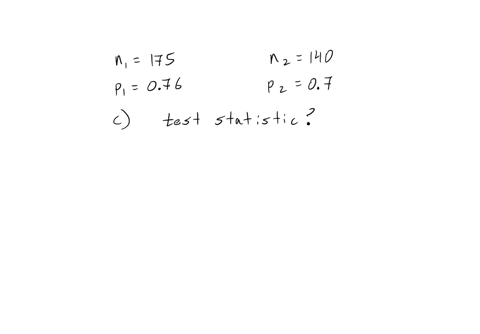 n₁ = 175 n₂ = 140
p₁ = 0.76 p₂ = 0.7
c) test statistic?